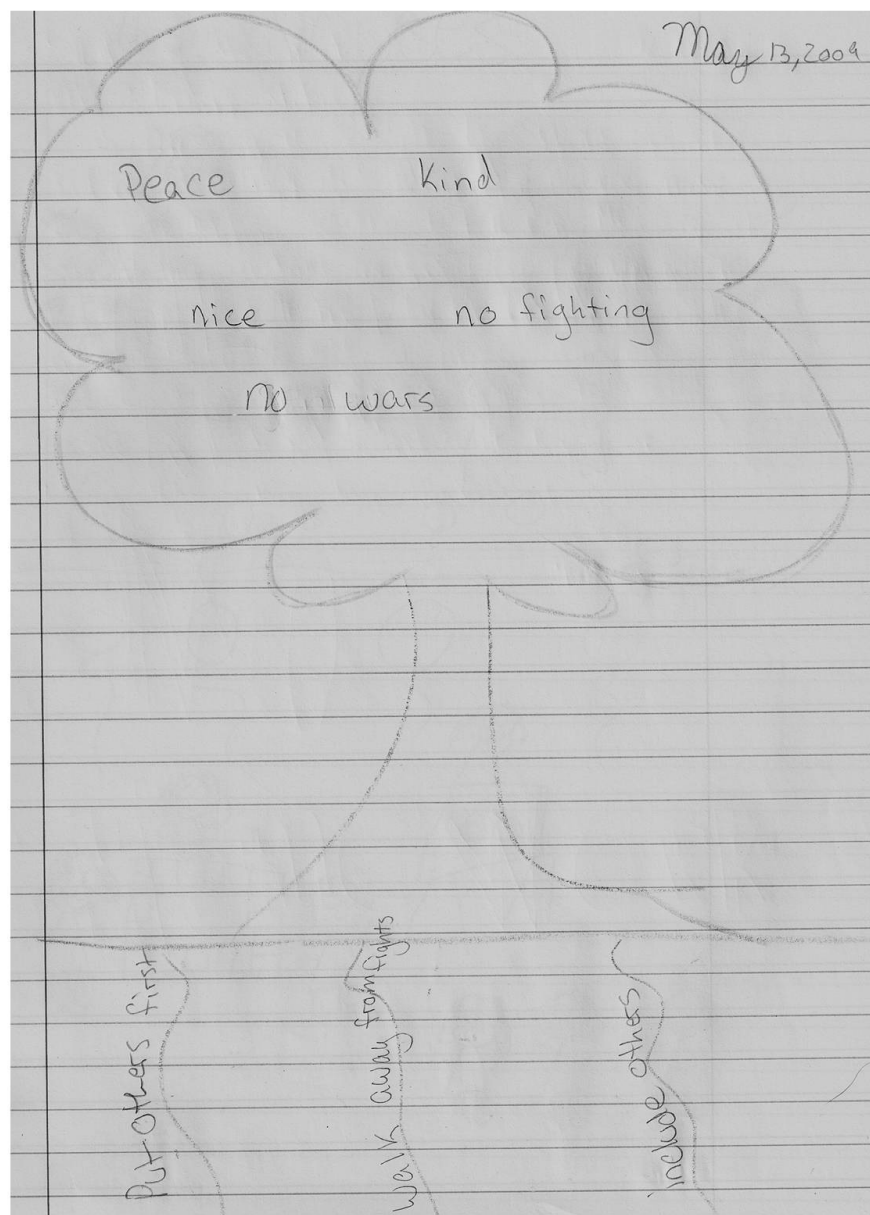 May 13, 2009
Peace kind
nice no fighting
no wars
Put others first
walk away from fights
include others